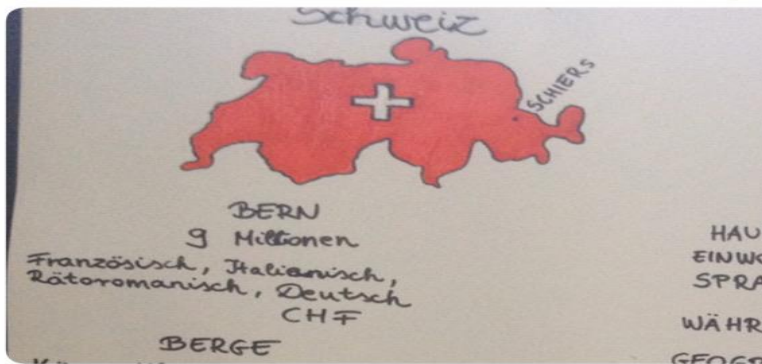 Schweiz
SCHIERS
BERN
9 Millionen
Französisch, Italienisch,
Rätoromanisch, Deutsch
CHF
BERGE
HAU
EINWO
SPRA
WÄHR